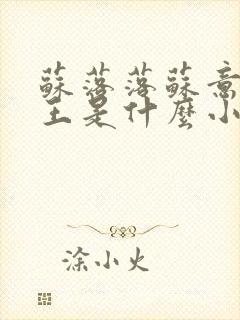 蘇落落蘇意
主是什麼小
涂小火